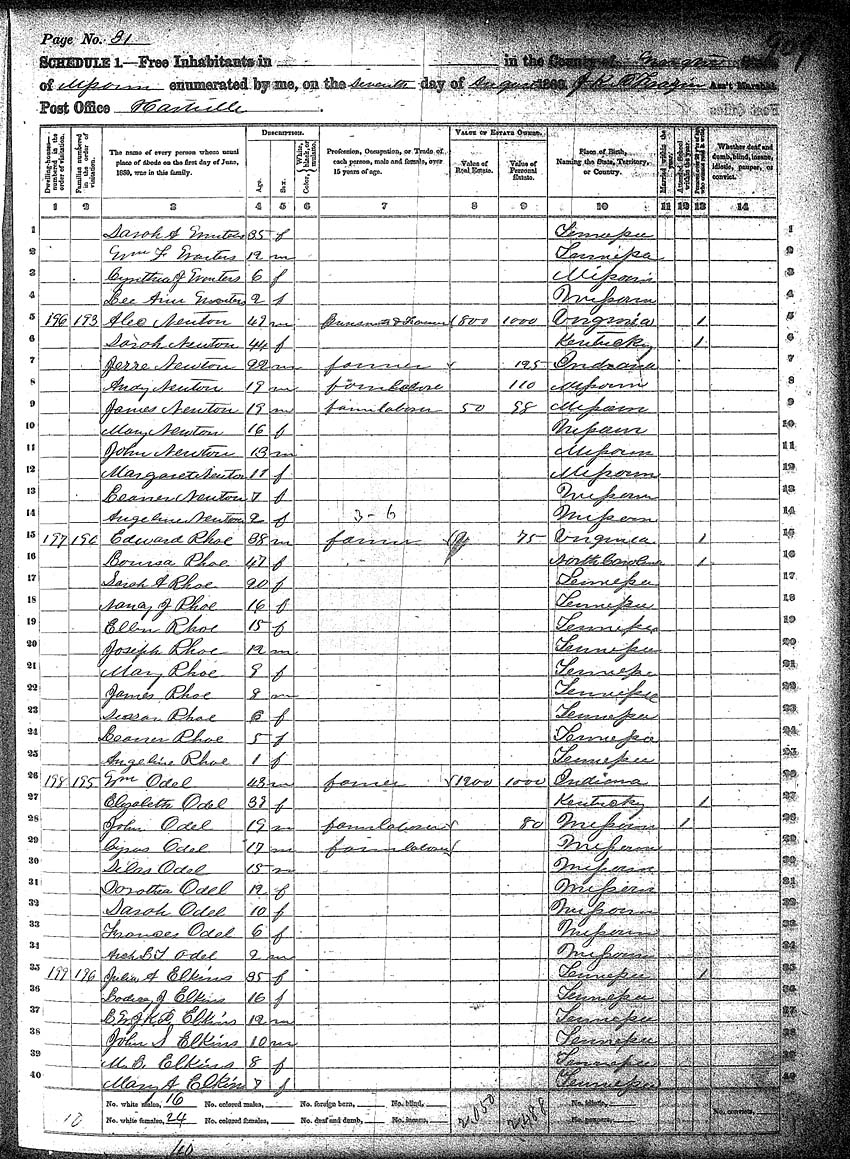 Page No. 31
SCHEDULE 1.—Free Inhabitants in in the County of State
of Missouri enumerated by me, on the Seventh day of August 1860. Ass't Marshal.
Post Office Hartville
DESCRIPTION. VALUE OF ESTATE OWNED.
Dwelling-houses—numbered in the order of visitation. Families numbered in the order of visitation. The name of every person whose usual place of abode on the first day of June, 1860, was in this family. Age. Sex. Color, White, black, or mulatto. Profession, Occupation, or Trade of each person, male and female, over 15 years of age. Value of Real Estate. Value of Personal Estate. Place of Birth, Naming the State, Territory, or Country. Married within the year. Attended School within the year. Persons over 20 y'rs of age who cannot read & write. Whether deaf and dumb, blind, insane, idiotic, pauper, or convict.
1 2 3 4 5 6 7 8 9 10 11 12 13 14
1 Sarah A 35 f Tennessee 1
2 Wm F 12 m Tennessee 2
3 Cynthia J 6 f Missouri 3
4 Lee Ann 2 f Missouri 4
5 196 193 Alec Newton 49 m 800 1000 Virginia 1 5
6 Sarah Newton 44 f Kentucky 1 6
7 Jerre Newton 22 m farmer 125 Indiana 7
8 Andy Newton 19 m farm labore 110 Missouri 8
9 James Newton 19 m farm laborer 50 98 Missouri 9
10 Mary Newton 16 f Missouri 10
11 John Newton 13 m Missouri 11
12 Margaret Newton 11 f Missouri 12
13 Newton 7 f Missouri 13
14 Angeline Newton 2 f 3-6 Missouri 14
15 197 194 Edward Rhoe 38 m farmer 75 Virginia 1 15
16 Rhoe 47 f North Carolina 1 16
17 Sarah A Rhoe 20 f Tennessee 17
18 Nancy J Rhoe 16 f Tennessee 18
19 Ellen Rhoe 15 f Tennessee 19
20 Joseph Rhoe 12 m Tennessee 20
21 Mary Rhoe 9 f Tennessee 21
22 James Rhoe 8 m Tennessee 22
23 Susan Rhoe 6 f Tennessee 23
24 Rhoe 5 f Tennessee 24
25 Angeline Rhoe 1 f Tennessee 25
26 198 195 Wm Odel 43 m farmer 1200 1000 Indiana 26
27 Elizabeth Odel 37 f Kentucky 1 27
28 John Odel 19 m farm laborer 80 Missouri 1 28
29 Cyrus Odel 17 m farm laborer Missouri 29
30 Silas Odel 15 m Missouri 30
31 Dorothea Odel 12 f Missouri 31
32 Sarah Odel 10 f Missouri 32
33 Frances Odel 6 f Missouri 33
34 Odel 2 m Missouri 34
35 199 196 Julia A Elkins 35 f Tennessee 1 35
36 J Elkins 16 f Tennessee 36
37 Elkins 12 m Tennessee 37
38 John S Elkins 10 m Tennessee 38
39 M. B. Elkins 8 f Tennessee 39
40 Mary A Elkins 7 f Tennessee 40
No. white males, 16 No. colored males, No. foreign born, No. blind, 2,050 2488 No. idiotic, No. convicts,
No. white females, 24 No. colored females, No. deaf and dumb, No. insane, No. paupers,
40